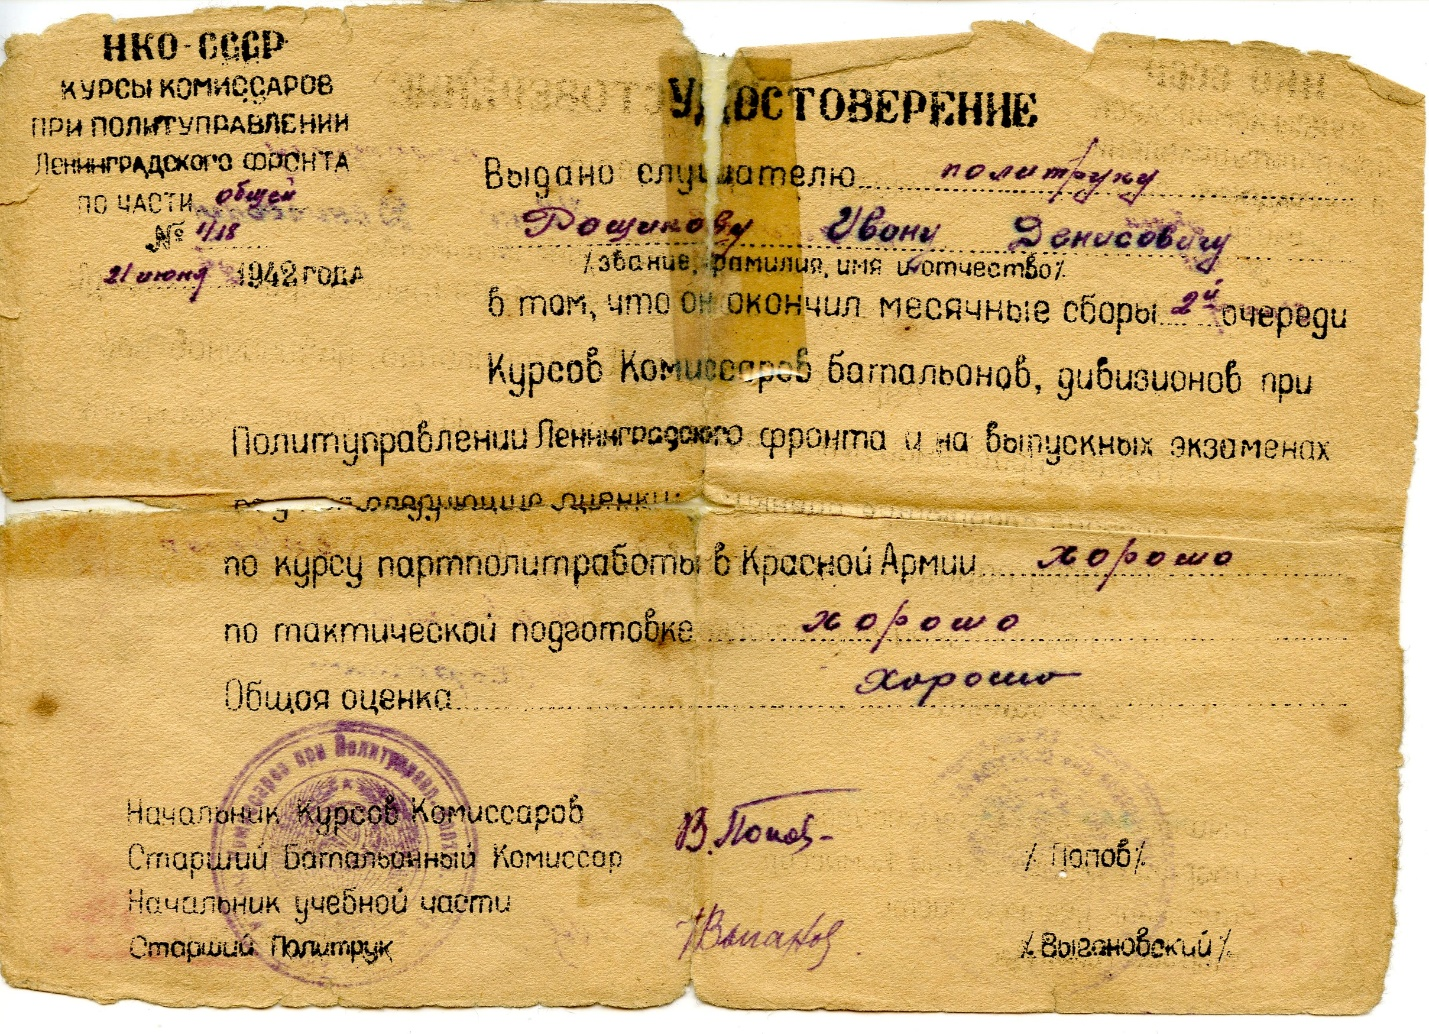 НКО-СССР
КУРСЫ КОМИССАРОВ
ПРИ ПОЛИТУПРАВЛЕНИИ
ЛЕНИНГРАДСКОГО ФРОНТА
ПО ЧАСТИ общей
№ 418
21 июня 1942 ГОДА
УДОСТОВЕРЕНИЕ
Выдано слушателю политруку
Рощикову Ивану Денисовичу
/звание, фамилия, имя и отчество/
в том, что он окончил месячные сборы 2й очереди
Курсов Комиссаров батальонов, дивизионов при
Политуправлении Ленинградского фронта и на выпускных экзаменах
следующие оценки:
по курсу партполитработы в Красной Армии хорошо
по тактической подготовке хорошо
Общая оценка хорошо
Начальник Курсов Комиссаров
Старший Батальонный Комиссар В. Попов /Попов/
Начальник учебной части
Старший Политрук /Выгановский/